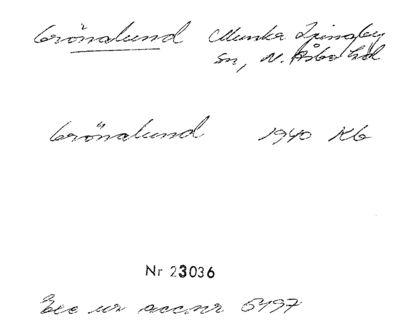 Grönalund Munka Ljungby
sn, N. Åsbo hd
Grönalund 1940 Kb
Nr 23036
Exc ur acc.nr 5497